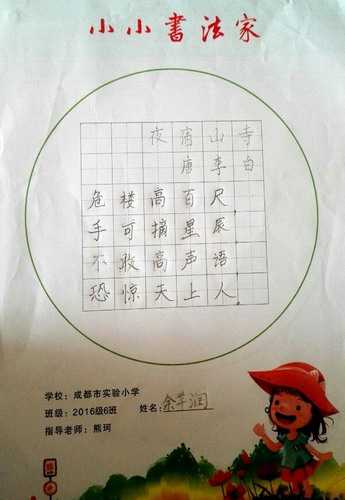 小小書法家
夜宿山寺
唐 李白
危楼高百尺
手可摘星辰
不敢高声语
恐惊天上人
学校：成都市实验小学
班级：2016级6班 姓名：余芊润
指导老师：熊珂